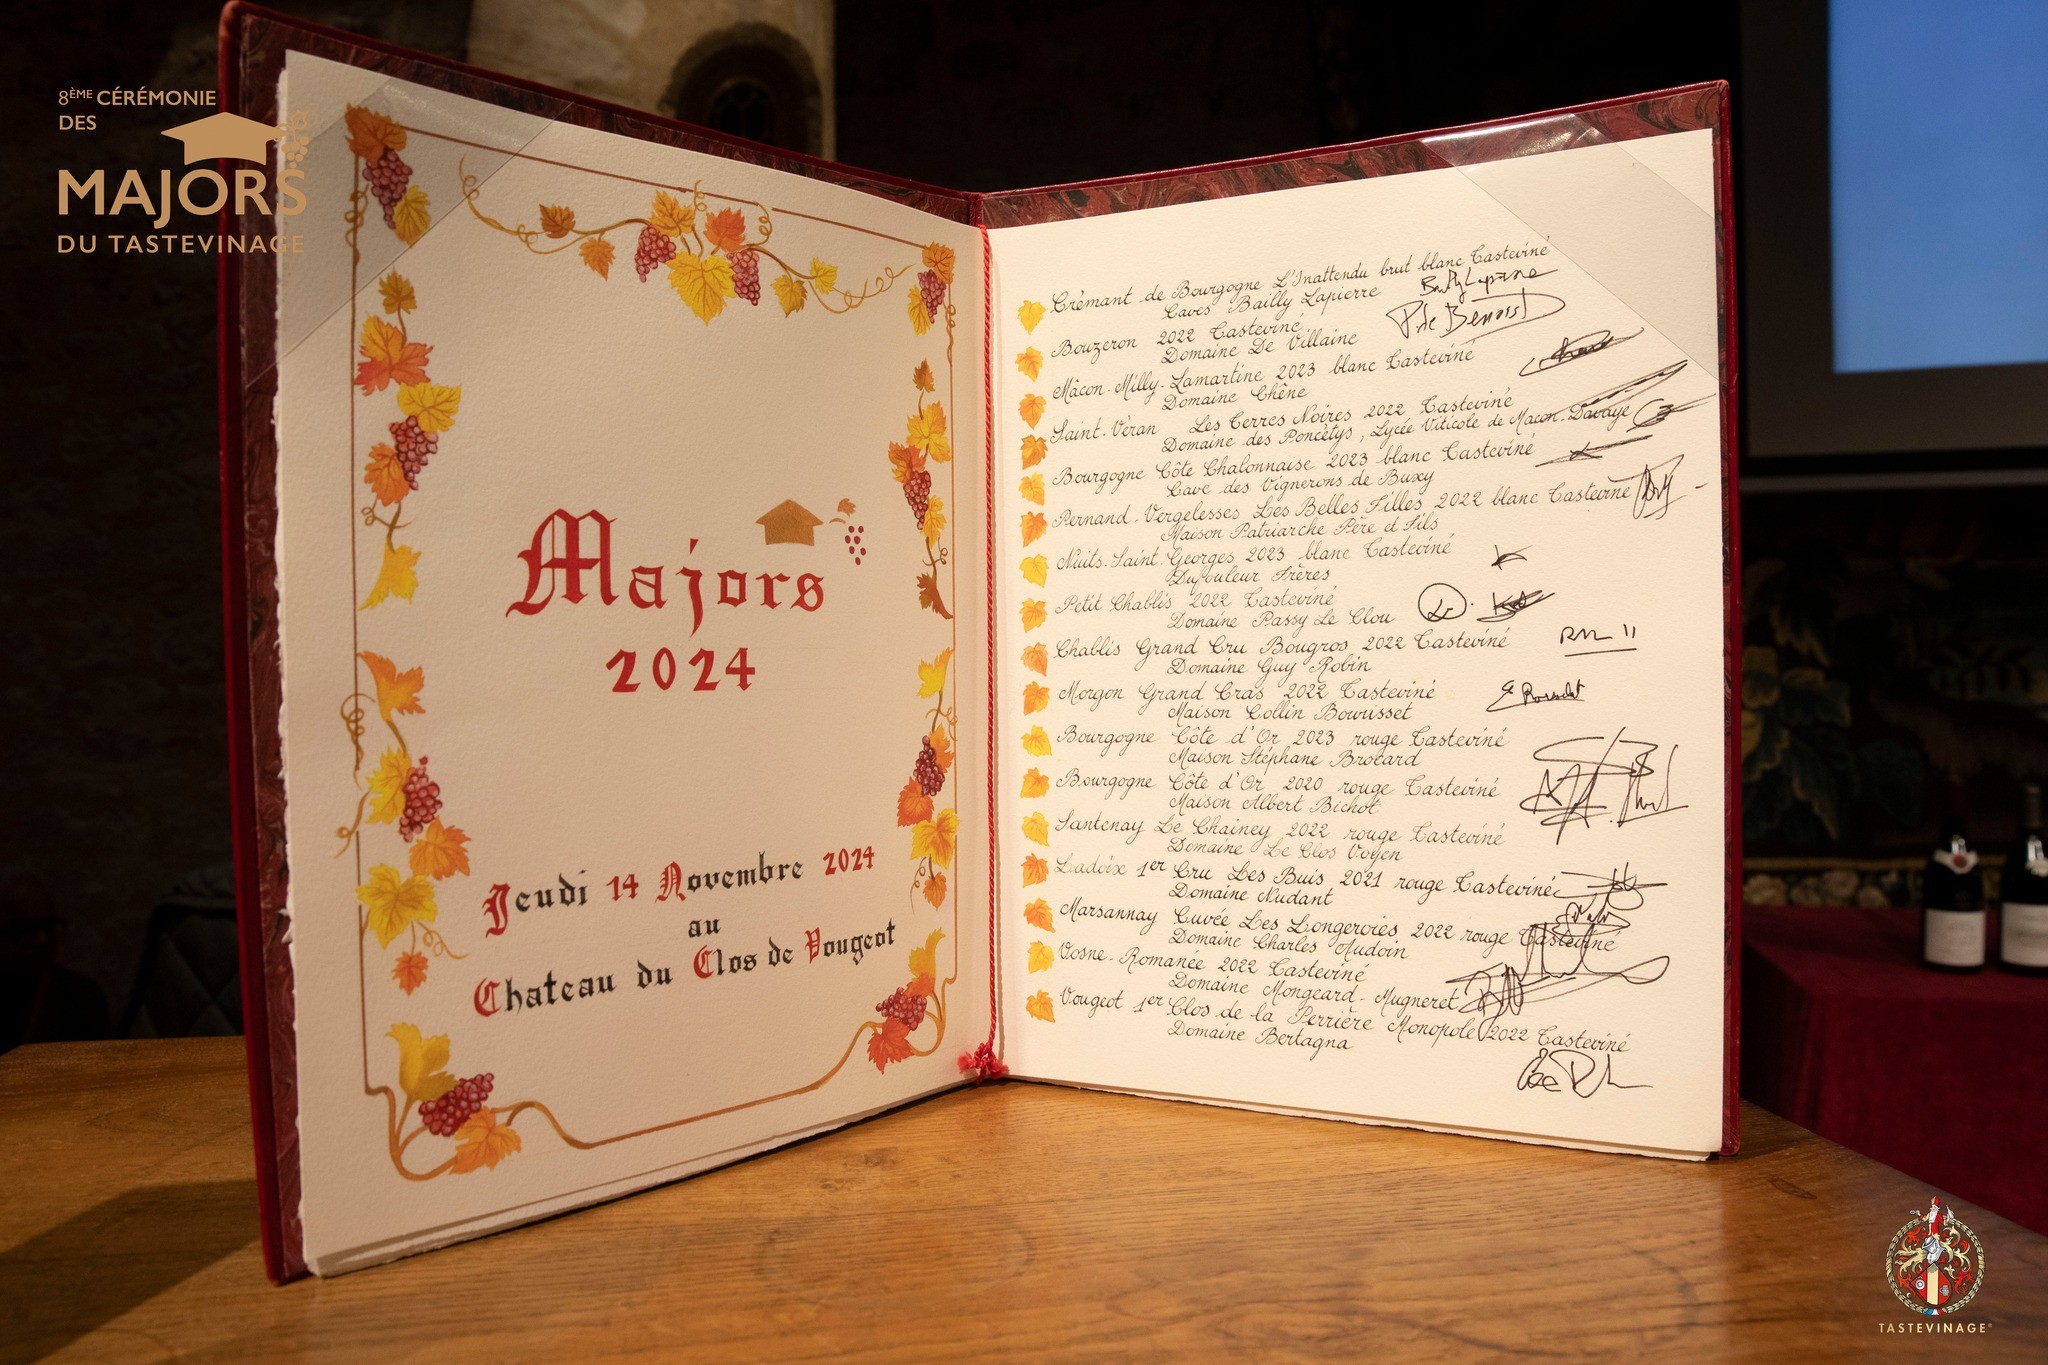 8ÈME CÉRÉMONIE
DES
MAJORS
DU TASTEVINAGE
Majors
2024
Jeudi 14 Novembre 2024
au
Chateau du Clos de Vougeot
Crémant de Bourgogne L'Inattendu brut blanc Tasteviné
Caves Bailly Lapierre
Bailly Lapierre
Bouzeron 2022 Tasteviné
Domaine De Villaine
P. de Benoist
Mâcon-Milly-Lamartine 2023 blanc Tasteviné
Domaine Chêne
Saint-Véran Les Terres Noires 2022 Tasteviné
Domaine des Poncétys, Lycée Viticole de Macon-Davaye
Bourgogne Côte Chalonnaise 2023 blanc Tasteviné
Cave des Vignerons de Buxy
Pernand-Vergelesses Les Belles Filles 2022 blanc Tasteviné
Maison Patriarche Père et Fils
Nuits-Saint-Georges 2023 blanc Tasteviné
Dufouleur Frères
Petit Chablis 2022 Tasteviné
Domaine Passy Le Clou
Chablis Grand Cru Bougros 2022 Tasteviné
Domaine Guy Robin
Morgon Grand Cras 2022 Tasteviné
Maison Collin Bourisset
Bourgogne Côte d'Or 2023 rouge Tasteviné
Maison Stéphane Brocard
Bourgogne Côte d'Or 2020 rouge Tasteviné
Maison Albert Bichot
Santenay Le Chainey 2022 rouge Tasteviné
Domaine Le Clos Voyen
Ladoix 1er Cru Les Buis 2021 rouge Tasteviné
Domaine Nudant
Marsannay Cuvée Les Longeroies 2022 rouge Tasteviné
Domaine Charles Audoin
Vosne-Romanée 2022 Tasteviné
Domaine Mongeard-Mugneret
Vougeot 1er Clos de la Perrière Monopole 2022 Tasteviné
Domaine Bertagna
TASTEVINAGE®